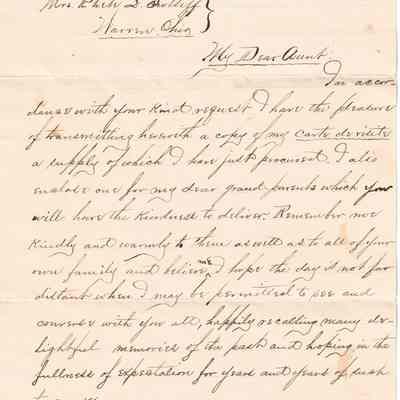 Mrs.
Warren, Ohio
My Dear Aunt.
In accor-
dance with your kind request, I have the pleasure
of transmitting herewith a copy of my carte de visite
a supply of which I have just procured. I also
enclose one for my dear grand parents which you
will have the kindness to deliver. Remember me
kindly and warmly to them as well as to all of your
own family and believe me I hope the day is not far
distant when I may be permitted to see and
converse with you all, happily recalling many de-
lightful memories of the past and hoping in the
fullness of expectation for years and years of such